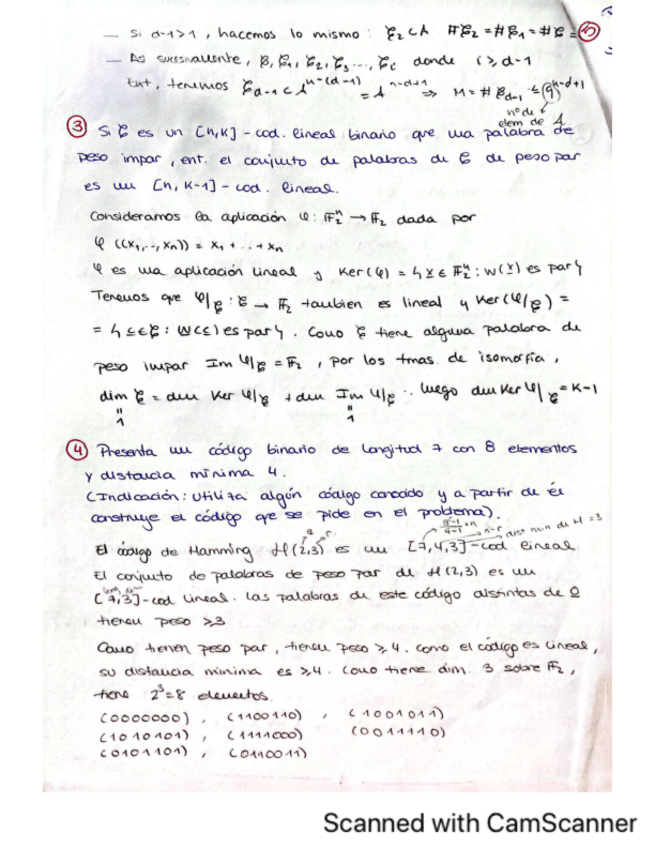 — Si d-1>1, hacemos lo mismo: ℰ₂ ⊂ A #ℰ₂ = #ℰ₁ = #ℰ =
— Así sucesivamente, ℰ, ℰ₁, ℰ₂, ℰ₃ ..., ℰᵢ donde i ≥ d-1
Ent, tenemos ℰ_{d-1} ⊂ A^{n-(d-1)} = A^{n-d+1} ⇒ M = #ℰ_{d-1} ≤ q^{n-d+1}
nº de elem de A
③ Si ℰ es un [n,k]-cod. lineal binario que una palabra de
peso impar, ent. el conjunto de palabras de ℰ de peso par
es un [n, k-1]-cod. lineal.
Consideramos la aplicación φ: 𝔽₂ⁿ → 𝔽₂ dada por
φ((x₁,..,xₙ)) = x₁ + ... + xₙ
φ es una aplicación lineal y Ker(φ) = {x ∈ 𝔽₂ⁿ : w(x) es par}
Tenemos que φ|ℰ : ℰ → 𝔽₂ tambien es lineal y Ker(φ|ℰ) =
= {c ∈ ℰ : w(c) es par}. Como ℰ tiene alguna palabra de
peso impar Im φ|ℰ = 𝔽₂, por los tmas. de isomorfia,
dim ℰ = dim Ker φ|ℰ + dim Im φ|ℰ . luego dim Ker φ|ℰ = k-1
" "
1 1
④ Presenta un código binario de longitud 7 con 8 elementos
y distancia mínima 4.
(Indicación: utiliza algún código conocido y a partir de él
construye el código que se pide en el problema).
n-r dist min de H = 3
El código de Hamming H(2,3) es un [7,4,3]-cod lineal
El conjunto de palabras de peso par de H(2,3) es un
[7,3]-cod lineal. Las palabras de este código distintas de 0
tienen peso ≥3
Como tienen peso par, tienen peso ≥ 4. como el código es lineal,
su distancia mínima es ≥4. Como tiene dim. 3 sobre 𝔽₂,
tiene 2³=8 elementos.
(0000000), (1100110), (1001011)
(1010101), (1111000) (0011110)
(0101101), (0110011)
Scanned with CamScanner